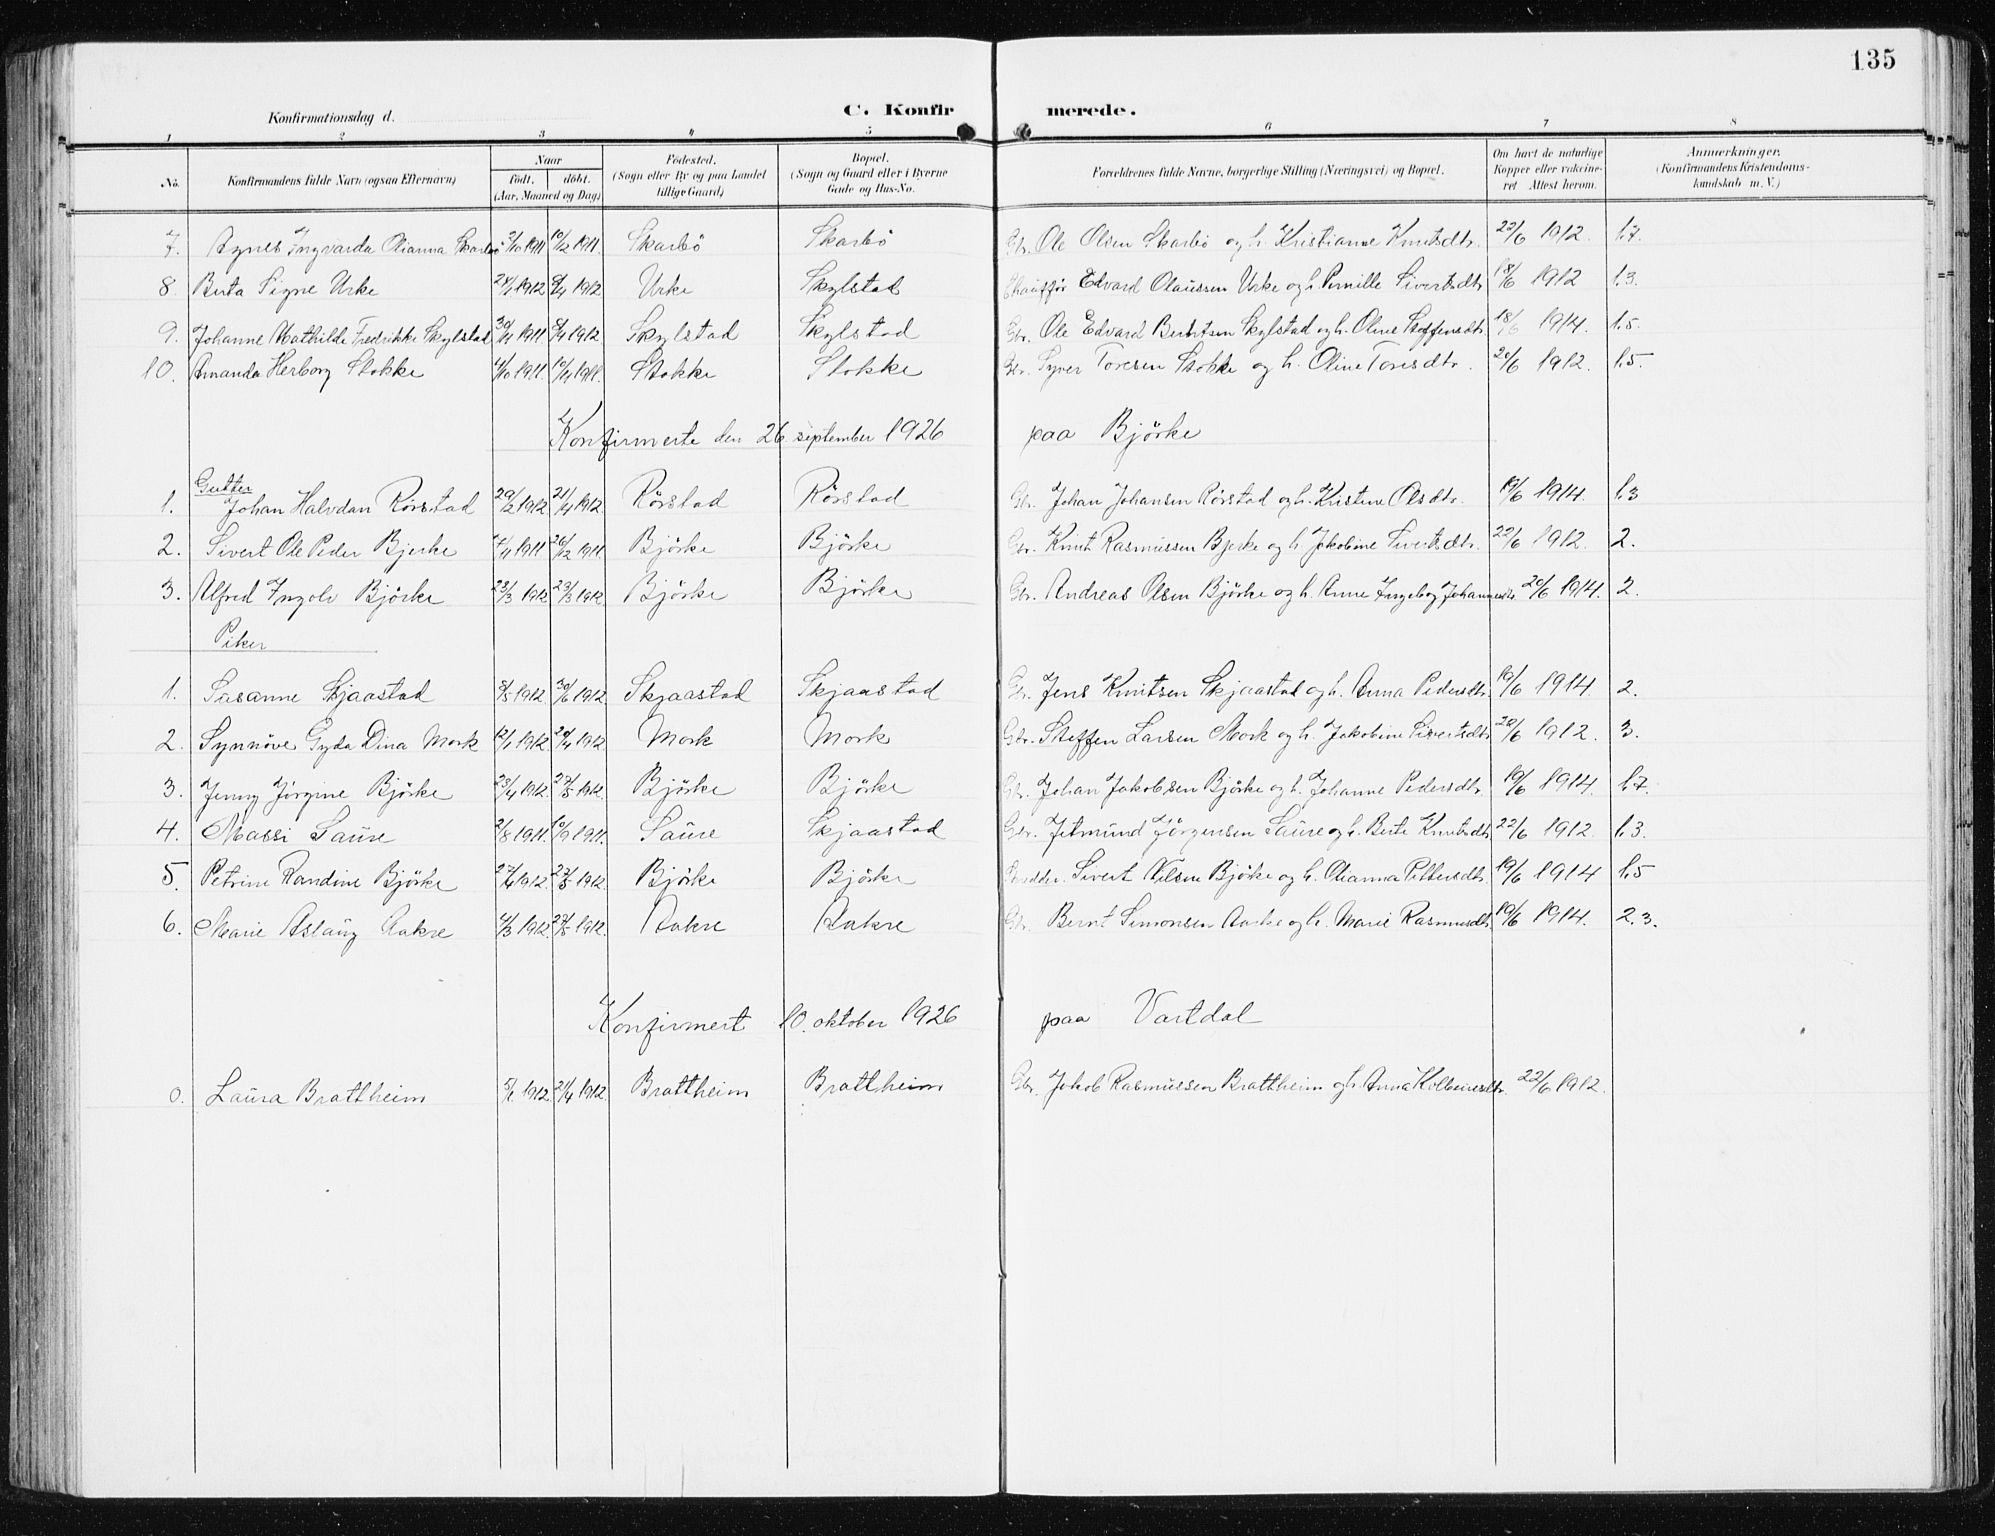 135
Konfirmationsdag d.
C. Konfir merede.
1 2 3 4 5 6 7 8
No. Konfirmandens fulde Navn (ogsaa Efternavn) Naar født. døbt. (Aar, Maaned og Dag) Fødested. (Sogn eller By og paa Landet tillige Gaard) Bopæl. (Sogn og Gaard eller i Byerne Gade og Hus-No. Forældrenes fulde Navne, borgerlige Stilling (Næringsvei) og Bopæl. Om havt de naturlige Kopper eller vakcineret Attest herom. Anmærkninger. (Konfirmandens Kristendomskundskab m. V.)
7. Agnes Ingvarda Olianna Skarbö 2/10 1911 10/12 1911. Skarbö Skarbö Gbr. Ole Olsen Skarbö og h. Kristianne Knutsdtr. 22/6 1912. 1.7.
8. Berta Signe Urke 24/1 1912 8/4 1912 Urke Skylstad Chauffør Edvard Olaussen Urke og h. Pernille Sivertsdtr 18/6 1912 1.3.
9. Johanne Mathilde Fredrikke Skylstad 30/11 1911 8/4 1912 Skylstad Skylstad Gbr. Ole Edvard Berntsen Skylstad og h. Oline Steffensdtr 18/6 1914. 1.5.
10. Amanda Herborg Stokke 4/10 1911. 10/11 1911. Stokke Stokke Gbr. Syver Toresen Stokke og h. Oline Toresdtr. 20/6 1912. 1.5.
Konfirmerte den 26. september 1926 paa Björke
Gutter
1. Johan Halvdan Rörstad 29/2 1912 21/4 1912. Rörstad Rörstad Gbr. Johan Johansen Rörstad og h. Kristine Olsdtr. 19/6 1914. 1.3
2. Sivert Ole Peder Bjerke 1911 26/12 1911. Björke Björke Gbr. Knut Rasmussen Bjerke og h. Jakobine Sivertsdtr. 22/6 1912. 2.
3. Alfred Ingolv Björke 23/3 1912 1912. Björke Björke Gbr. Andreas Olsen Björke og h. Anne Ingeborg 20/6 1914. 2.
Piker
1. Susanne Skjaastad 8/5 1912. 30/6 1912. Skjaastad Skjaastad Gbr. Jens Knutsen Skjaastad og h. Anna Pedersdtr. 19/6 1914 2.
2. Synnöve Gyda Dina Mork 12/1 1912. 20/4 1912 Mork Mork Gbr. Steffen Larsen Mork og h. Jakobine Sivertsdtr 20/6 1912. 3.
3. Jenny Jörgine Björke 23/4 1912. 27/5 1912. Björke Björke Gbr. Johan Jakobsen Björke og h. Johanne Pedersdtr. 19/6 1914. 1.7.
4. Massi Saure 2/8 1911. 10/9 1911. Saure Skjaastad Gbr. Jetmund Jörgensen Saure og h. Berte Knutsdtr. 22/6 1912. 1.3.
5. Petrine Randine Björke 27/4 1912. 27/5 1912. Björke Björke Sivert Nilsen Björke og h. Olianna Pettersdtr. 19/6 1914 1.5
6. Marie Aslaug Aakre 4/3 1912. 27/5 1912. Aakre Aakre Gbr. Bernt Simonsen Aakre og h. Marie Rasmusdtr. 19/6 1914. 2.3.
Konfirmert 10. oktober 1926 paa Vartdal
0. Laura Brattheim 5/1 1912. 21/4 1912. Brattheim Brattheim Gbr. Jakob Rasmussen Brattheim og h. Anna 22/6 1912.